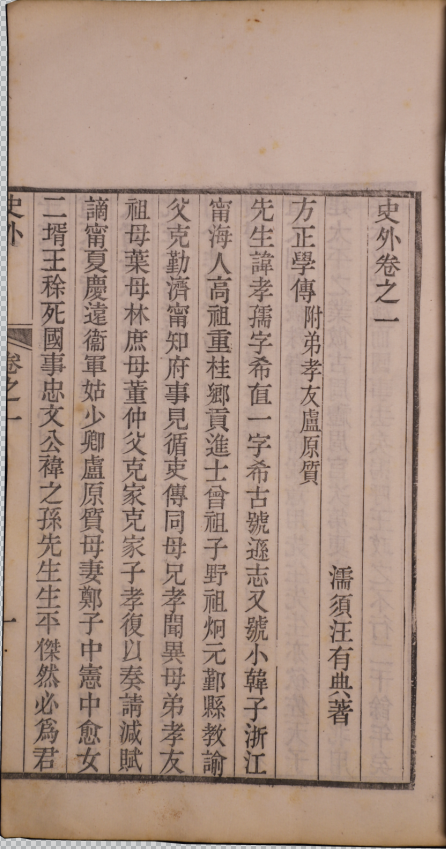 史外卷之一
濡須汪有典著
方正學傳附弟孝友盧原質
先生諱孝孺字希直一字希古號遜志又號小韓子浙江
甯海人高祖重桂鄉貢進士曾祖子野祖炯元鄞縣教諭
父克勤濟甯知府事見循吏傳同母兄孝聞異母弟孝友
祖母葉母林庶母董仲父克家克家子孝復以奏請減賦
謫甯夏慶遠衞軍姑少卿盧原質母妻鄭子中憲中愈女
二壻王稌死國事忠文公禕之孫先生生平傑然必爲君
史外
卷之一
一